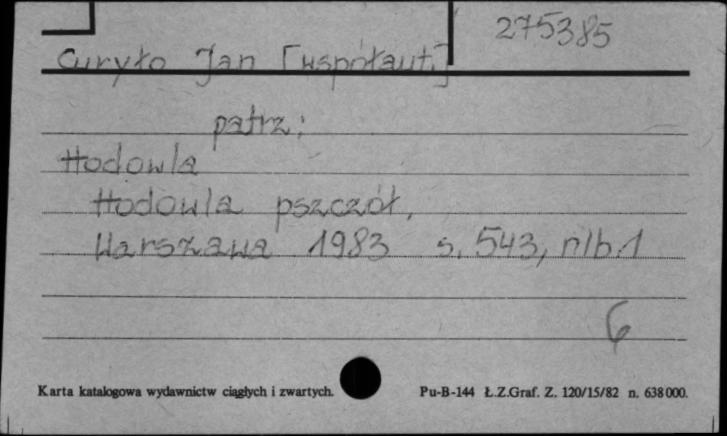 275385
Curyło Jan [współaut.]
patrz:
Hodowla
Hodowla pszczół,
Warszawa 1983 s. 543, nlb. 1
6
Karta katalogowa wydawnictw ciągłych i zwartych. Pu-B-144 Ł.Z.Graf. Z. 120/15/82 n. 638000.